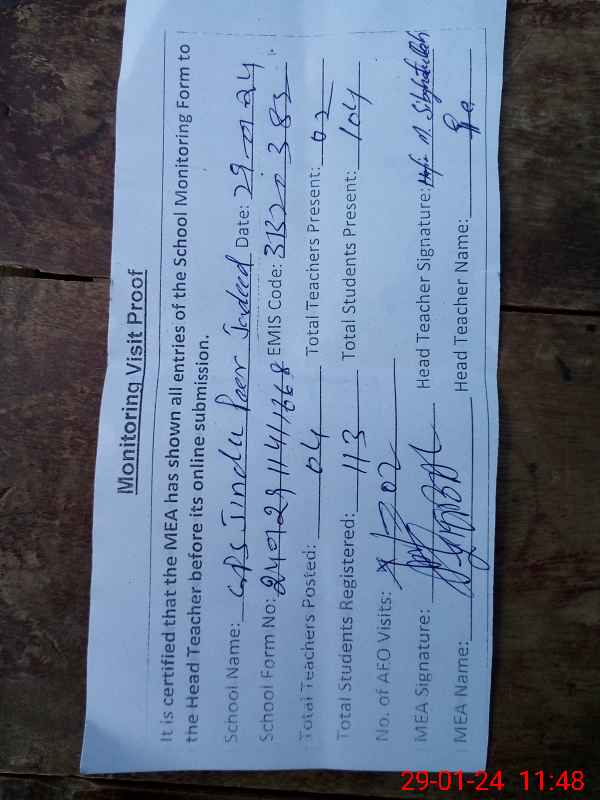 Monitoring Visit Proof
It is certified that the MEA has shown all entries of the School Monitoring Form to
the Head Teacher before its online submission.
School Name: GPS Jindu Peer Jadeed Date: 29-01-24
School Form No: EMIS Code: 31320385
Total Teachers Posted: 04 Total Teachers Present: 02
Total Students Registered: 113 Total Students Present: 104
No. of AEO Visits: 02
MEA Signature: Head Teacher Signature:
MEA Name: Head Teacher Name:
29-01-24 11:48